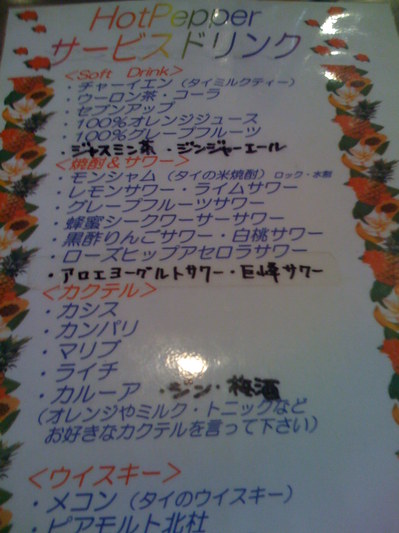 HotPepper
サービスドリンク
<Soft Drink>
・チャーイエン（タイミルクティー）
・ウーロン茶・コーラ
・セブンアップ
・100%オレンジジュース
・100%グレープフルーツ
・ジャスミン茶・ジンジャーエール
<焼酎＆サワー>
・モンシャム（タイの米焼酎）ロック・水割
・レモンサワー・ライムサワー
・グレープフルーツサワー
・蜂蜜シークワーサーサワー
・黒酢りんごサワー・白桃サワー
・ローズヒップアセロラサワー
・アロエヨーグルトサワー・巨峰サワー
<カクテル>
・カシス
・カンパリ
・マリブ
・ライチ
・カルーア ・ジン・梅酒
（オレンジやミルク・トニックなど
お好きなカクテルを言って下さい）
<ウイスキー>
・メコン（タイのウイスキー）
・ピアモルト北杜